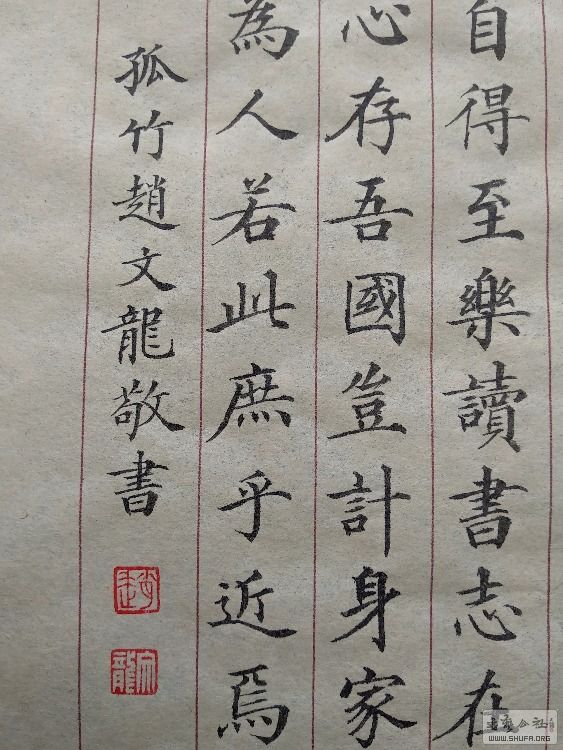 自得至樂讀書志在
心存吾國豈計身家
為人若此庶乎近焉
孤竹趙文龍敬書
趙
文龍
WWW.SHUFA.ORG